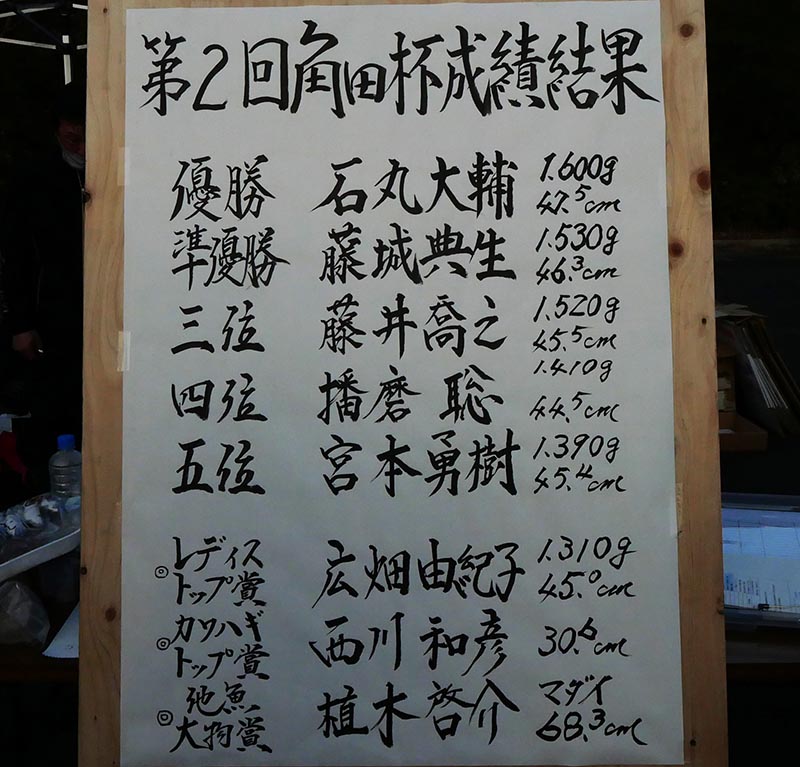 第2回角田杯成績結果
優勝 石丸大輔 1.600g 47.5cm
準優勝 藤城典生 1.530g 46.3cm
三位 藤井喬之 1.520g 45.5cm
四位 播磨聡 1.410g 44.5cm
五位 宮本勇樹 1.390g 45.4cm
◎レディストップ賞 広畑由紀子 1.310g 45.0cm
◎カワハギトップ賞 西川和彦 30.6cm
◎他魚大物賞 植木啓介 マダイ 68.3cm